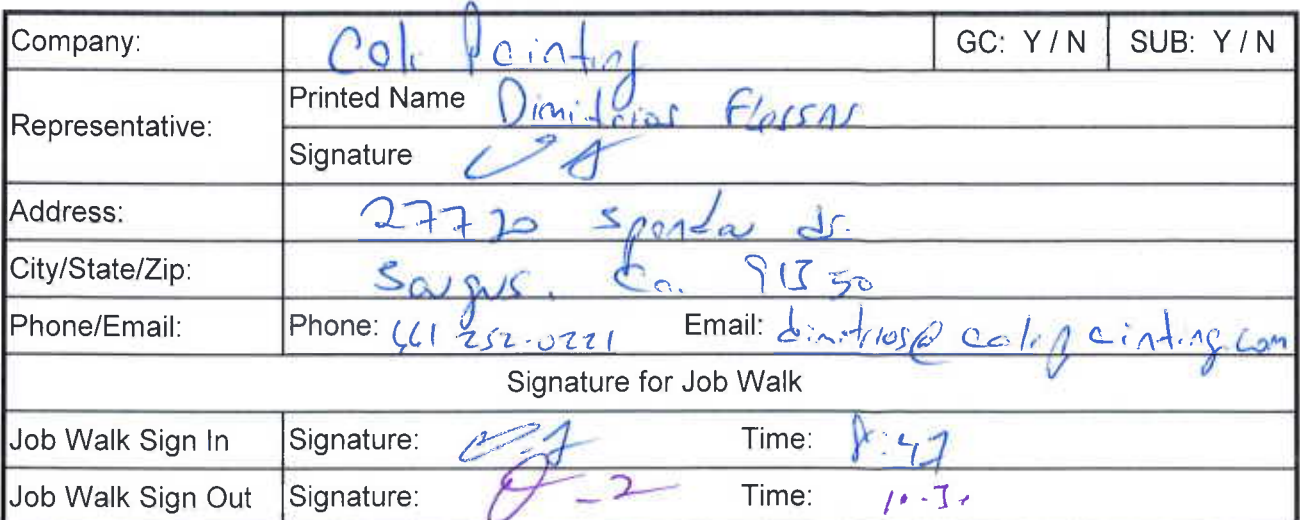 Company: Cali Painting GC: Y / N SUB: Y / N
Representative: Printed Name Dimitrios Flessas
Signature
Address: 27720 sponda dr.
City/State/Zip: Saugus. Ca. 91350
Phone/Email: Phone: 661 252-0221 Email: dimitrios@calipainting.com
Signature for Job Walk
Job Walk Sign In Signature: Time: 8:47
Job Walk Sign Out Signature: Time: 10:30